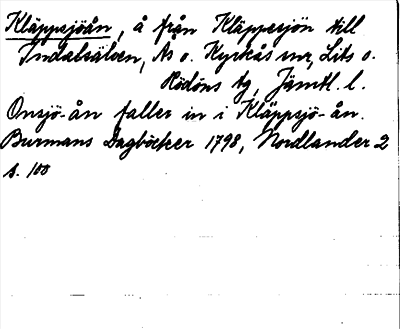 Kläppsjöån, å från Kläppesjön till
Indalsälven, Ås o. Kyrkås snr, Lits o.
Rödöns tg, Jämtl. l.
Onsjö-ån faller in i Kläppsjö-ån.
Burmans Dagböcker 1798, Nordlander 2
s. 100